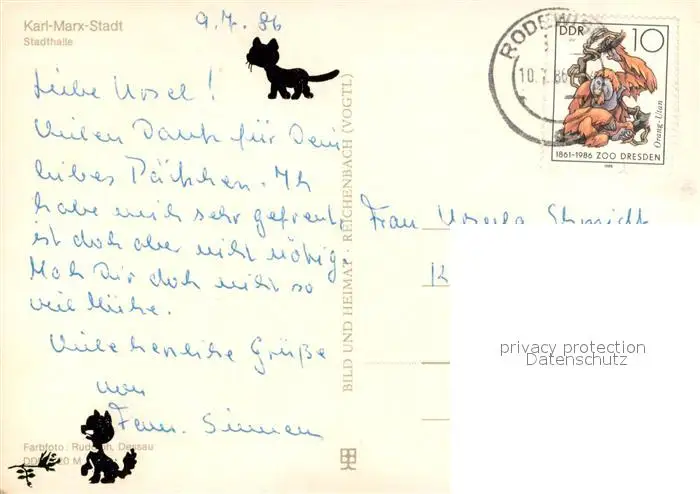 Karl-Marx-Stadt
Stadthalle
9.7.86
Liebe Ursel!
Vielen Dank für Dein
liebes Päckchen. Ich
habe mich sehr gefreut,
ist doch aber nicht nötig.
Mach Dir doch nicht so
viel Mühe.
Viele herzliche Grüße
von
Fam.
Farbfoto: Rudolph, Dessau
BILD UND HEIMAT · REICHENBACH (VOGTL)
RODEWISCH
10.7.86
DDR 10
Orang-Utan
1861-1986 ZOO DRESDEN
Frau Ursula Schmidt
privacy protection
Datenschutz